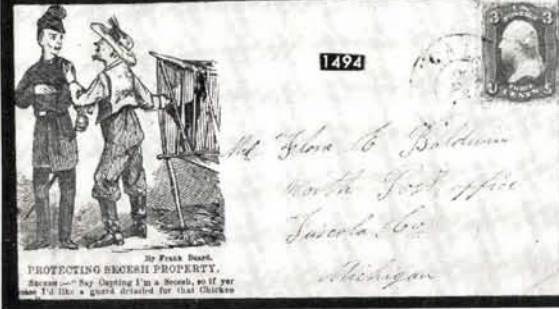 1494
3 3
U.S. POSTAGE
THREE
CENTS
By Frank Beard.
PROTECTING SECESH PROPERTY.
SECESH—"Say Capting I'm a Secesh, so if yer
please I'd like a guard detailed for that Chicken
Flora E Baldwin
North Post office
Tuscola Co
Michigan